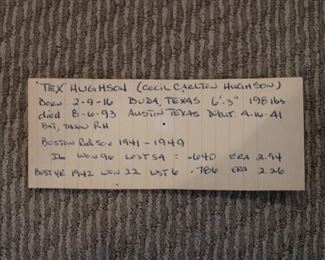 "TEX" HUGHSON (CECIL CARLTON HUGHSON)
BORN 2-9-16 BUDA, TEXAS 6'-3" 198 lbs
died 8-6-93 AUSTIN TEXAS DEBUT 4-16-41
BAT, THROW R.H
BOSTON RED SOX 1941-1949
WON 96 LOST 54 = .640 ERA 2.94
BEST YR 1942 WON 22 LOST 6 .786 ERA 2.26